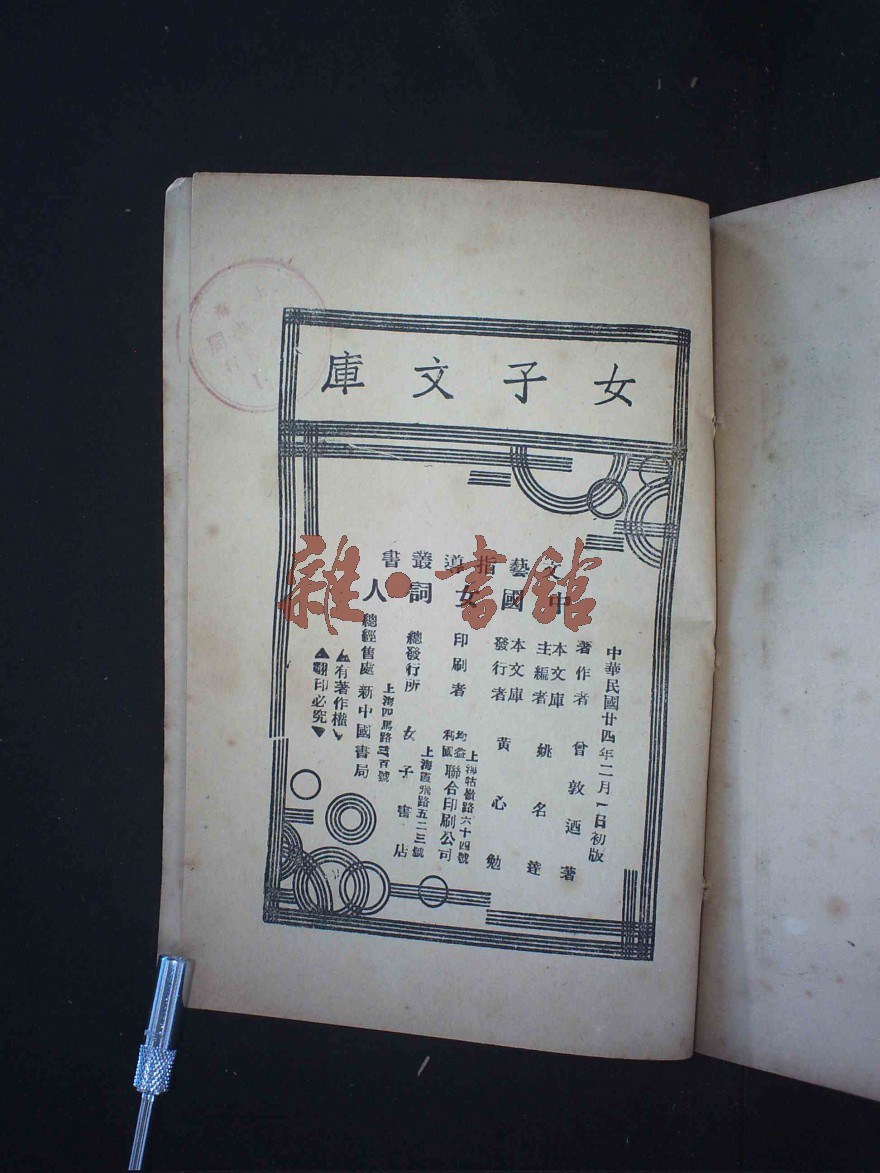 女子文庫
文藝指導叢書
中國女詞人
中華民國廿四年二月一日初版
著作者 曾敦迺 著
本文庫主編者 姚名達
本文庫發行者 黃心勉
印刷者 均益利國聯合印刷公司
上海牯嶺路六十四號
總發行所 女子書店
上海霞飛路五二三號
總經售處 新中國書局
上海四馬路三百號
▲有著作權▼
▲翻印必究▼
雜·書館